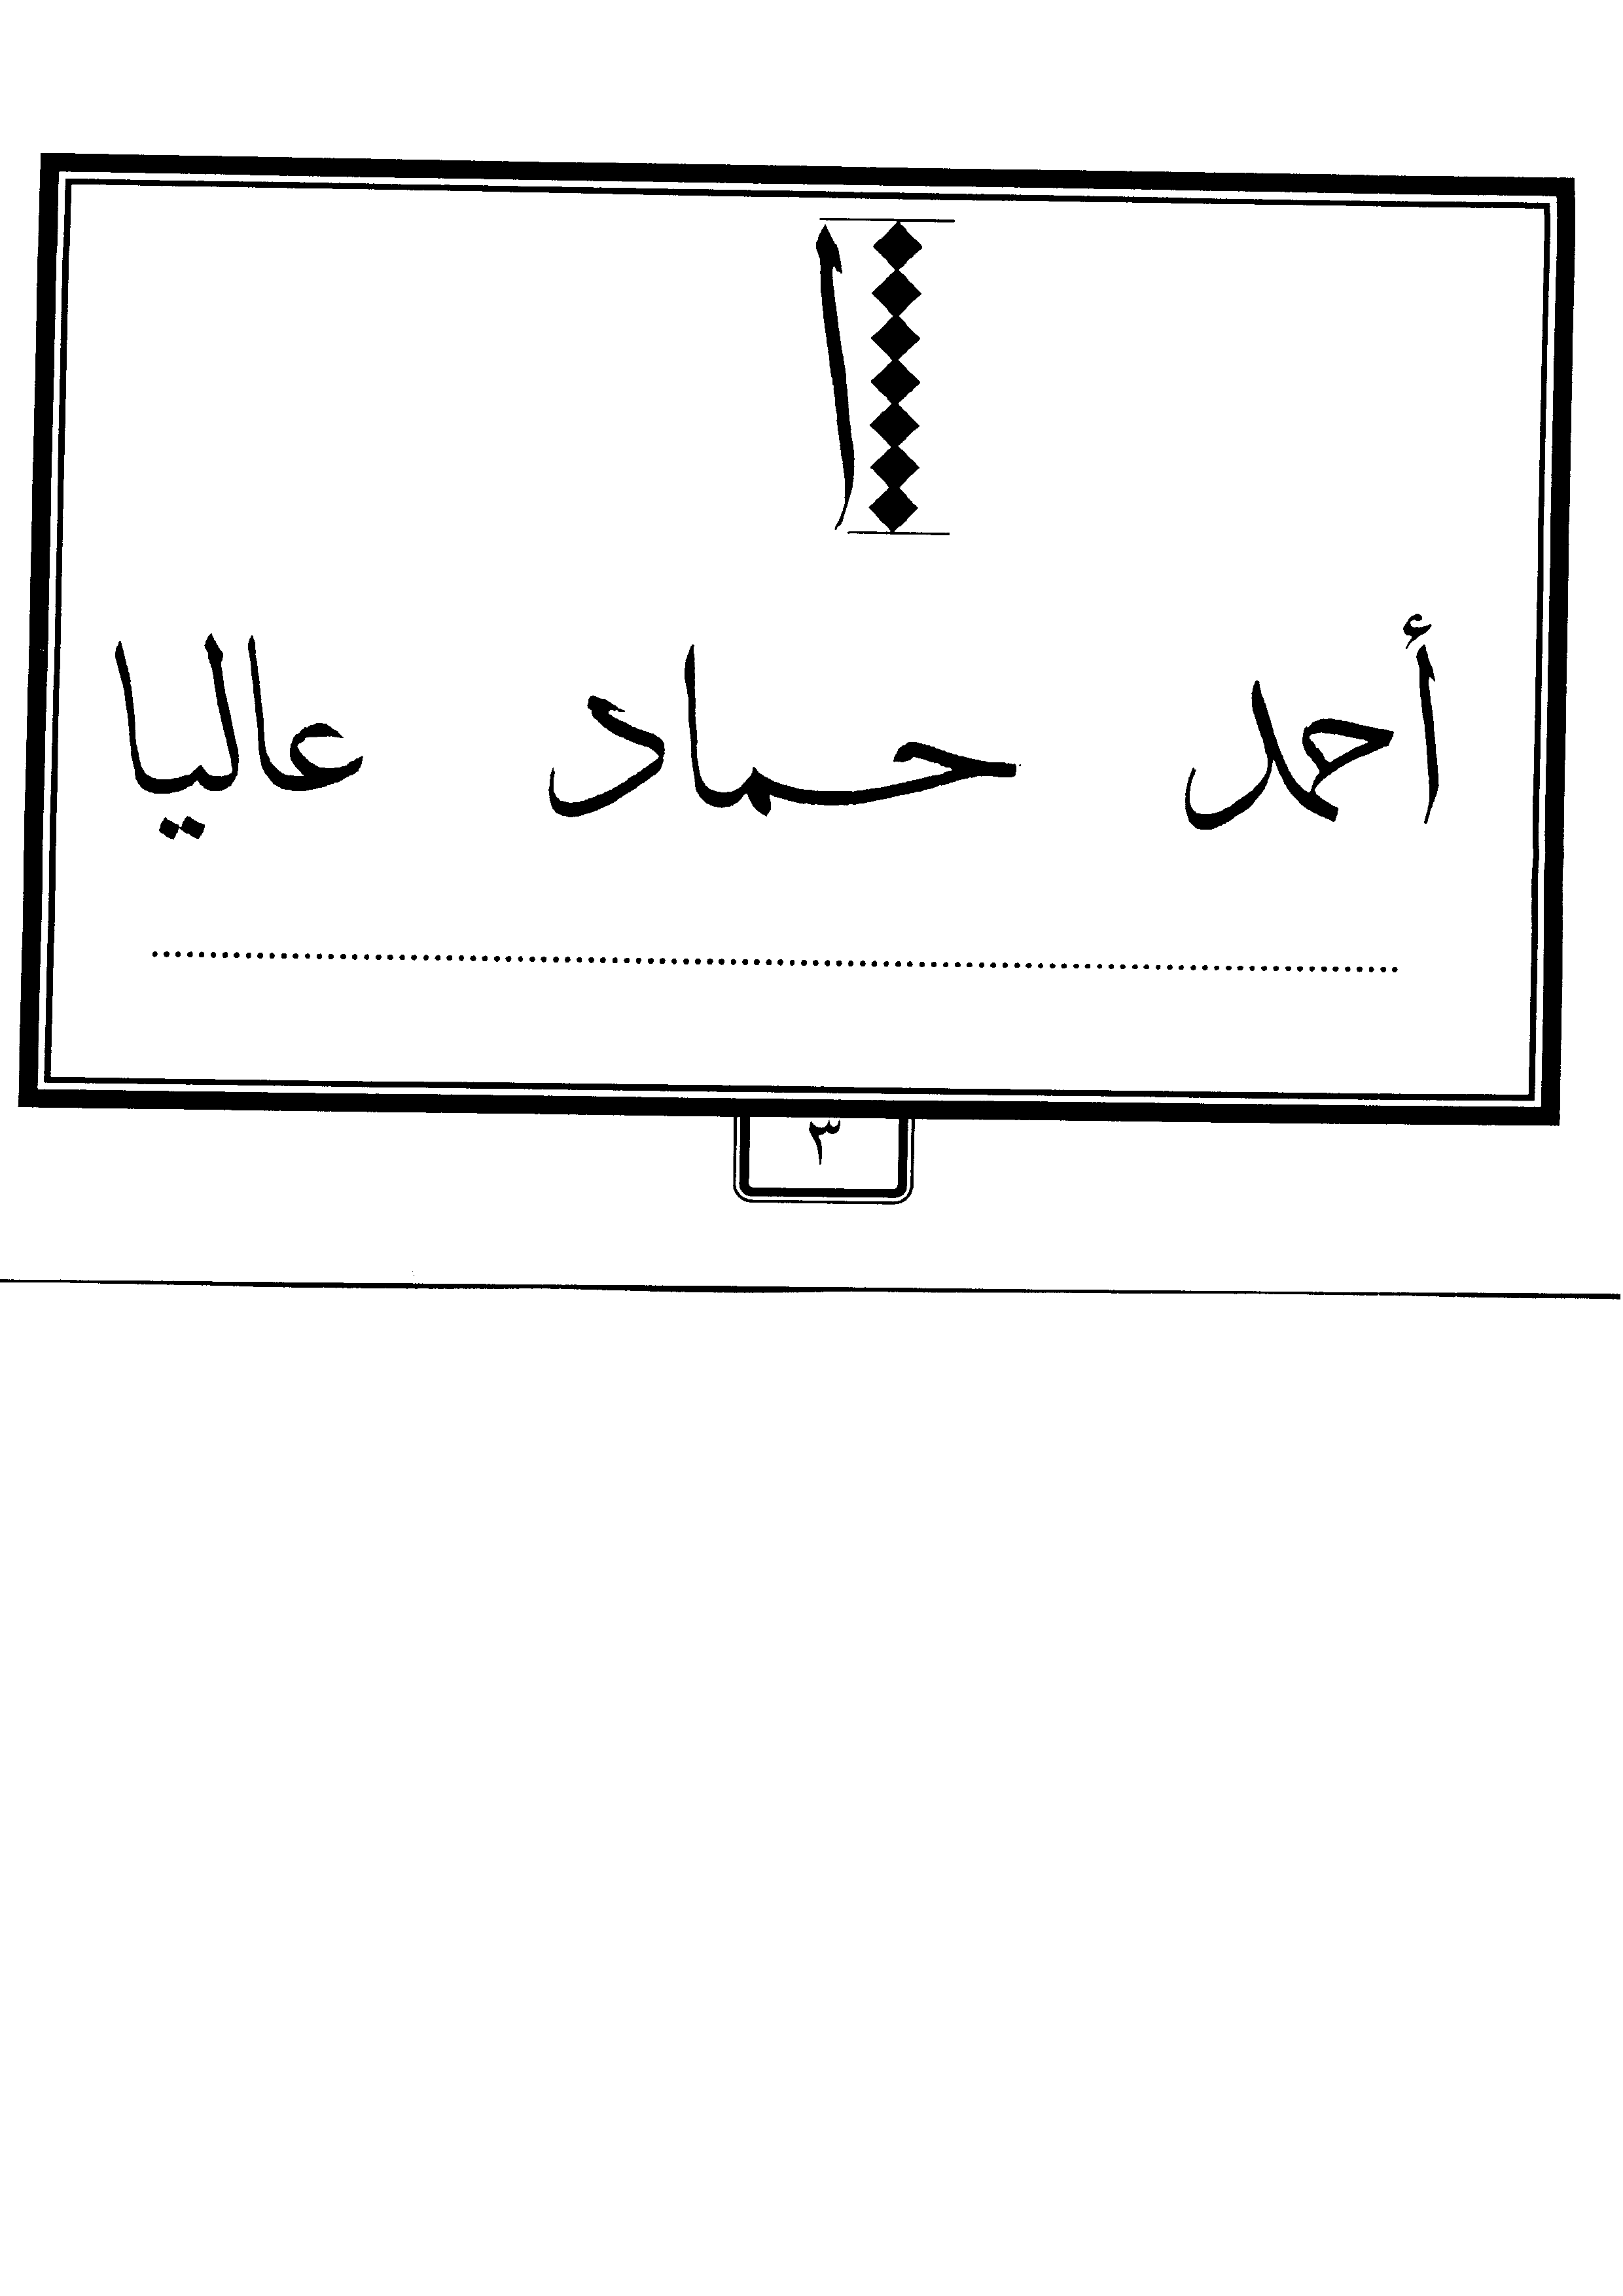 ا
أحمد حماد عاليا
٣